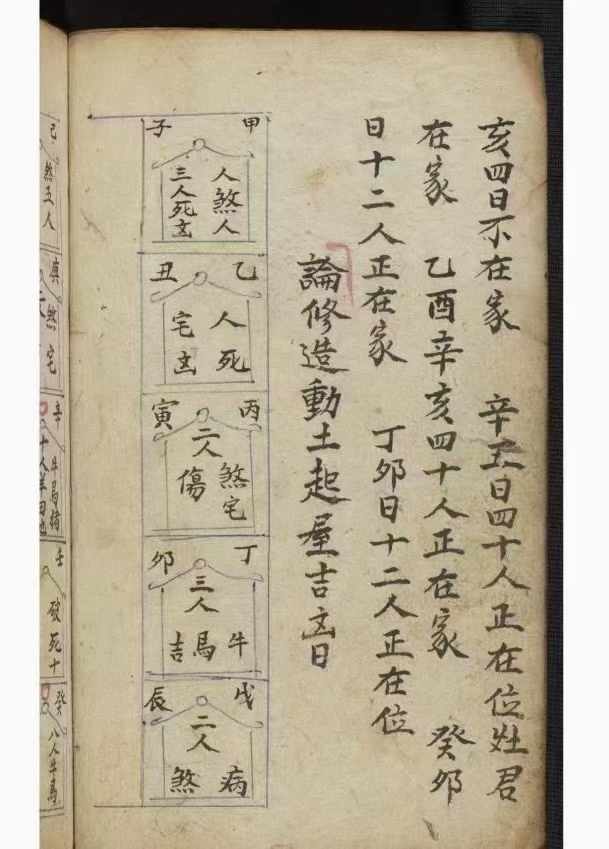 亥四日不在家 辛丑日四十人正在位灶君
在家 乙酉辛亥四十人正在家 癸卯
日十二人正在家 丁卯日十二人正在位
論修造動土起屋吉㐫日
甲子
人煞人
三人死㐫
乙丑
人死
宅㐫
丙寅
二人
煞宅
傷
丁卯
三人
牛馬吉
戊辰
二人
病煞
己
煞五人
庚
煞宅
辛
牛馬猪
壬
破死十
癸
八人牛馬